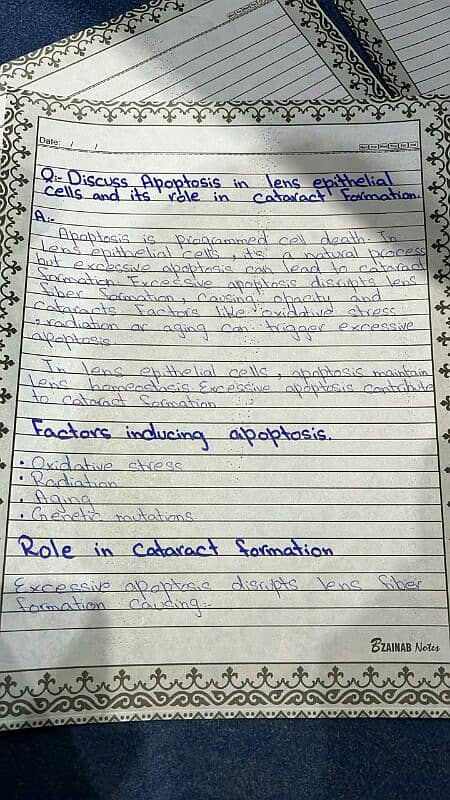 Date: / /
Q:- Discuss Apoptosis in lens epithelial
cells and its role in cataract formation.
A:-
Apoptosis is programmed cell death. In
lens epithelial cells, it's a natural process
but excessive apoptosis can lead to cataract
formation. Excessive apoptosis disripts lens
fiber formation, causing opacity and
cataracts. Factors like oxidative stress
, radiation or aging can trigger excessive
apoptosis.
In lens epithelial cells, apoptosis maintain
lens homeostasis. Excessive apoptosis contribute
to cataract formation.
Factors inducing apoptosis.
• Oxidative stress
• Radiation
• Aging
• Genetic mutations
Role in cataract formation
Excessive apoptosis disripts lens fiber
formation causing:-
BZAINAB Notes